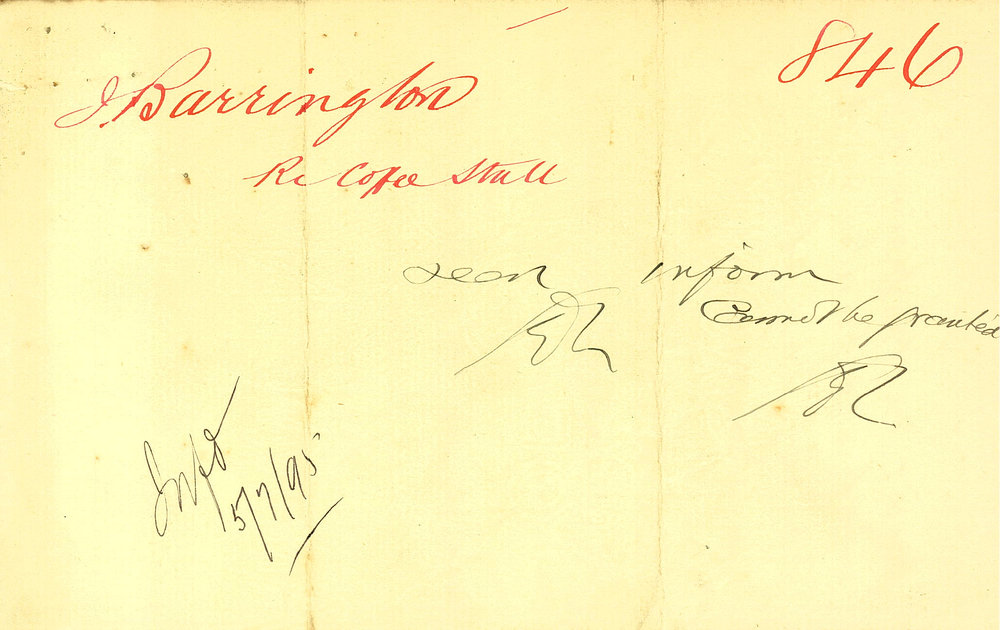 846
J Barrington
Re Coffee Stall
seen inform
Cannot be granted
Infd
5/7/95